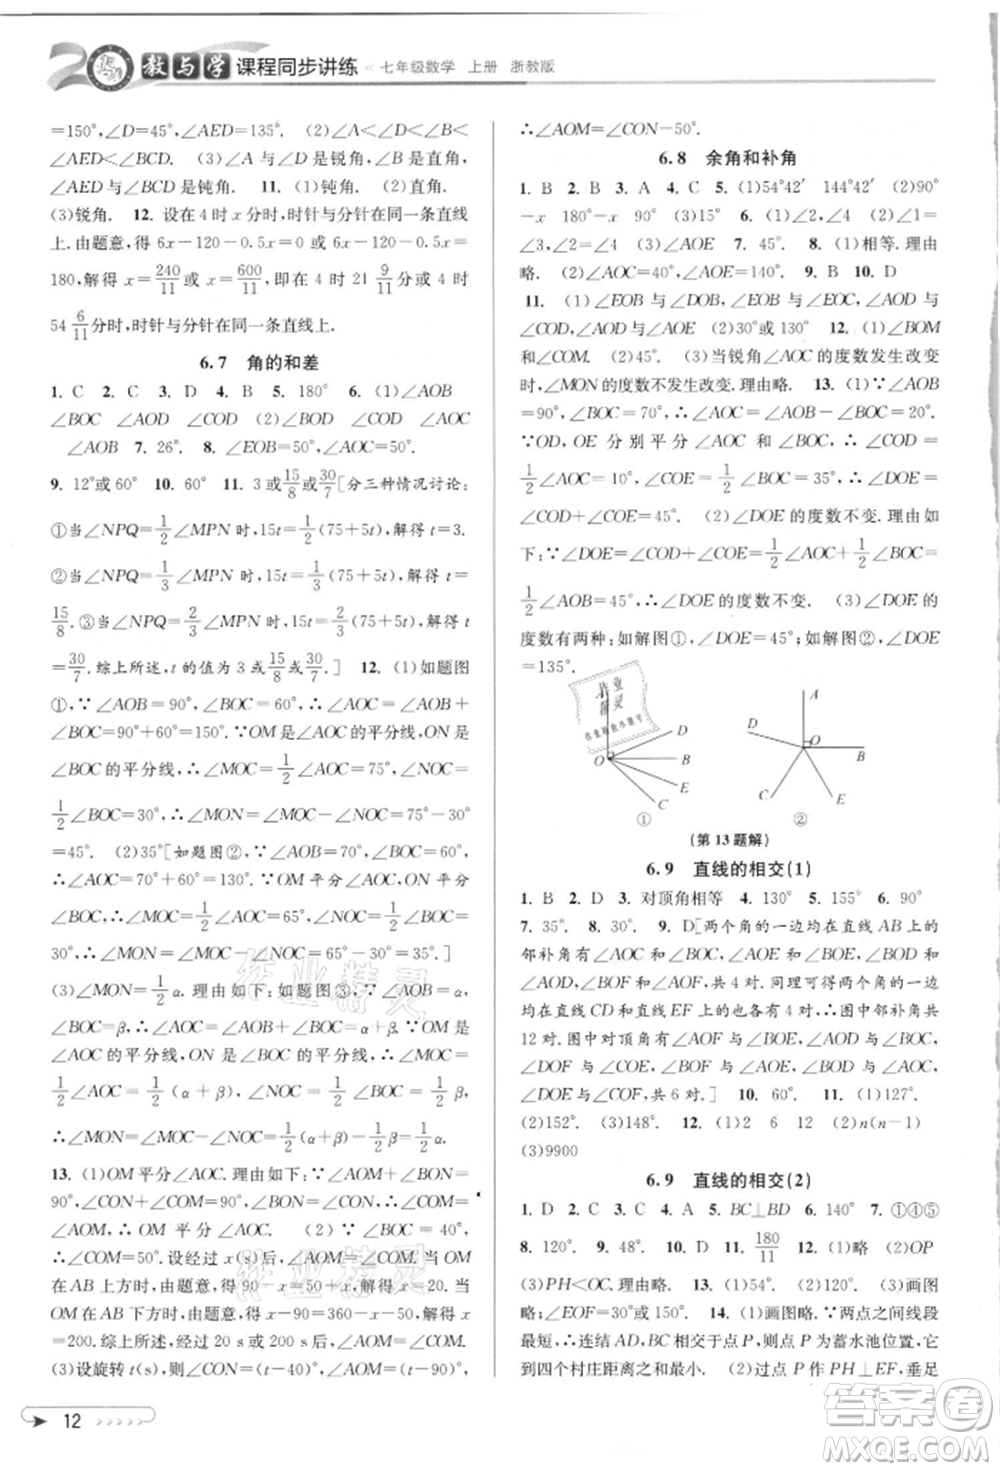 教与学 课程同步讲练 « 七年级数学 上册 浙教版
=150°,∠D=45°,∠AED=135°. (2)∠A<∠D<∠B<
∠AED<∠BCD. (3)∠A、∠D是锐角,∠B是直角,
∠AED与∠BCD是钝角. 11. (1)钝角. (2)直角.
(3)锐角. 12. 设在4时x分时,时针与分针在同一条直线
上.由题意,得6x-120-0.5x=0或6x-120-0.5x=
180,解得x=240/11或x=600/11,即在4时21 9/11分或4时
54 6/11分时,时针与分针在同一条直线上.
6.7 角的和差
1. C 2. C 3. D 4. B 5. 180° 6. (1)∠AOB
∠BOC ∠AOD ∠COD (2)∠BOD ∠COD ∠AOC
∠AOB 7. 26° 8. ∠EOB=50°,∠AOC=50°.
9. 12°或60° 10. 60° 11. 3或15/8或30/7[分三种情况讨论:
①当∠NPQ=1/2∠MPN时,15t=1/2(75+5t),解得t=3.
②当∠NPQ=1/3∠MPN时,15t=1/3(75+5t),解得t=
15/8.③当∠NPQ=2/3∠MPN时,15t=2/3(75+5t),解得t
=30/7.综上所述,t的值为3或15/8或30/7.] 12. (1)如题图
①,∵∠AOB=90°,∠BOC=60°,∴∠AOC=∠AOB+
∠BOC=90°+60°=150°.∵OM是∠AOC的平分线,ON是
∠BOC的平分线,∴∠MOC=1/2∠AOC=75°,∠NOC=
1/2∠BOC=30°,∴∠MON=∠MOC-∠NOC=
45°. (2)35°[如题图②,∵∠AOB=70°,∠BOC=
60°,∴∠AOC=70°+60°=130°.∵OM平分∠AOC,ON平分
∠BOC,∴∠MOC=1/2∠AOC=65°,∠NOC=1/2∠BOC=
30°,∴∠MON=∠MOC-∠NOC=65°-30°=35°.]
(3)∠MON=1/2α.理由如下:如题图③,∵∠AOB=α,
∠BOC=β,∴∠AOC=α+β.∵OM是
∠AOC的平分线,ON是∠BOC的平分线,∴∠MOC=
1/2∠AOC=1/2(α+β),∠NOC=1/2∠BOC=1/2β,
∴∠MON=∠MOC-∠NOC=1/2(α+β)-1/2β=1/2α.
13. (1)OM平分∠AOC.理由如下:∵∠AOM=
∠CON+∠COM=90°,∠AOM=
∠AOM,∴OM平分∠AOC. (2)∵∠AOM=
∠COM=50°.设经过x(s)后,∠AOM=∠COM.当OM
在AB上方时,由题意,得90-x=50+x,解得x=20.当
OM在AB下方时,由题意,得x-90=360-x-50,解得x=
200.综上所述,20 s或200 s后,∠AOM=∠COM.
(3)设旋转t(s),则∠CON=(t-40)°,∠AOM=(t-90)°,
∴∠AOM=∠CON-50°.
6.8 余角和补角
1. B 2. B 3. A 4. C 5. (1)54°42′ 144°42′ (2)90°
-x 180°-x 90° 6. (1)∠2,∠4 (2)∠1=
∠3,∠4=∠5 (3)∠AOE 7. 45° 8. (1)相等.理由
略. (2)∠AOC=40°,∠COE=50°. 9. B 10. D
11. (1)∠EOB与∠DOB,∠EOB与∠EOC,∠AOD与
∠DOB,∠AOD与∠EOC. (2)30°或150°. 12. (1)∠BOM
和∠COM. (2)45°. (3)当锐角∠AOC的度数发生改变
时,∠MON的度数不发生改变.理由略. 13. (1)∵∠AOB
=90°,∠BOC=70°,∴∠AOC=∠AOB-∠BOC=20°.
∵OD,OE分别平分∠AOC和∠BOC,∴∠COD=
1/2∠AOC=10°,∠COE=1/2∠BOC=35°,∴∠DOE=
∠COD+∠COE=45°. (2)∠DOE的度数不变.理由如
下:∵∠DOE=∠COD+∠COE=1/2∠AOC+1/2∠BOC=
1/2∠AOB=45°,∴∠DOE的度数不变. (3)∠DOE的
度数有两种:如解图①,∠DOE=45°;如解图②,∠DOE
=135°.
A
D
B
O
E
C
①
A
D
O
B
C
E
②
(第13题解)
6.9 直线的相交(1)
1. B 2. D 3. 对顶角相等 4. 130° 5. 155° 6. 90°
7. 35° 8. 30° 9. D[两个角的一边均在直线AB上的
邻补角有∠AOC与∠BOC,∠AOE与∠BOE,
∠AOD与∠BOD,∠AOF与∠BOF,共4对,同理可得一边均
在直线CD和直线EF上的也各有4对,∴图中邻补角共有
12对.图中对顶角有∠AOD与∠BOC,
∠AOE与∠BOF,∠DOE与∠COF,∠AOC与∠BOD,
∠DOF与∠COE,共6对.] 10. 60° 11. (1)127°.
(2)152°. (3)148°. 12. (1)2 6 12 (2)n(n-1)
(3)9900
6.9 直线的相交(2)
1. D 2. C 3. D 4. A 5. BC⊥BD 6. 140° 7. ①④⑤
8. 120° 9. 48° 10. D 11. 180/11 12. (1)略. (2)OP
(3)PH<OC.理由略. 13. (1)略. (2)120°. (3)画图
略;∠EOF=30°或150°. 14. (1)画图略.∵两点之间线段
最短,∴连结AD,BC相交于点P,则点P为蓄水池位置,它
到四个村庄距离之和最小. (2)过点P作PH⊥EF,垂足
12
作业精灵
作业精灵
作业精灵
答案圈
MXQE.COM